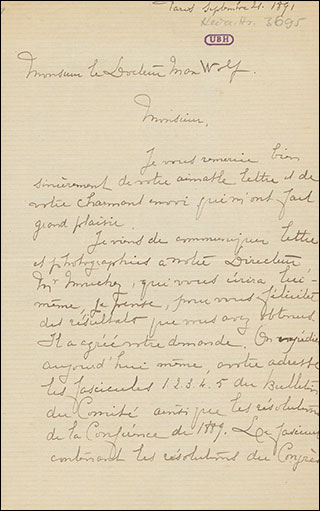 Paris Septembre 21. 1891
Heid. Hs. 3695
UBH
Monsieur le Docteur Max Wolf.
Monsieur,
Je vous remercie bien
sincèrement de votre aimable lettre et de
votre charmant envoi qui m'ont fait
grand plaisir.
Je viens de communiquer lettre
et photographies à notre Directeur
Mr Mouchez, qui vous écrira lui-
même, je pense, pour vous féliciter
des résultats que vous avez obtenus.
Il a agréé votre demande. On expédie
aujourd'hui même, à votre adresse
les fascicules 1.2.3.4.5 du Bulletin
du Comité ainsi que les résolutions
de la Conférence de 1889. Le fascicule
contenant les résolutions du Congrès